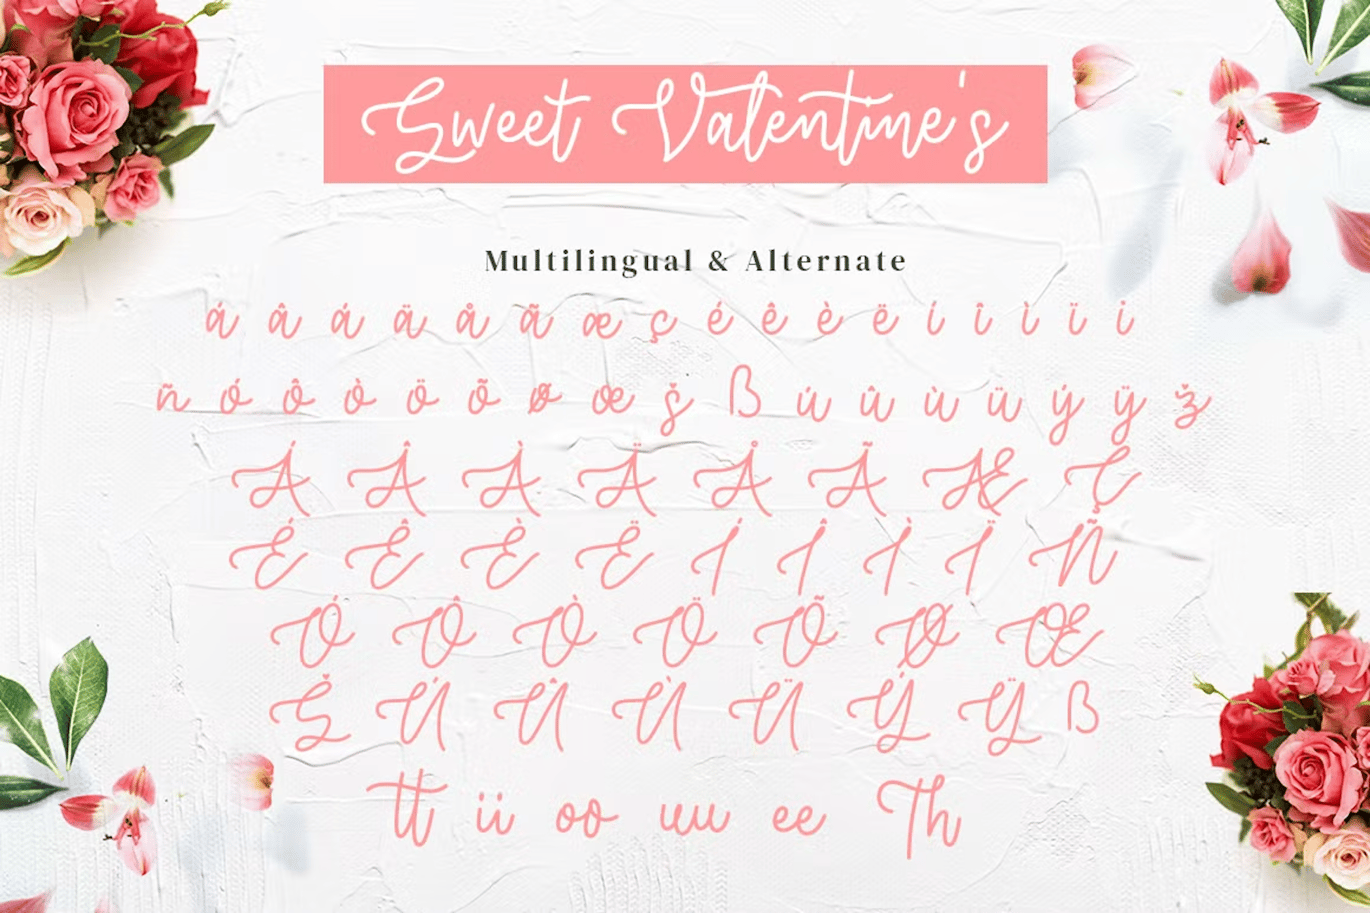 Sweet Valentine's
Multilingual & Alternate
á â á ä å ã æ ç é ê è ë í î ì ï i
ñ ó ô ò ö õ ø œ š ß ú û ù ü ý ÿ ž
Á Â À Ä Å Ã Æ Ç
É Ê È Ë Í Î Ì Ï Ñ
Ó Ô Ò Ö Õ Ø Œ
Š Ú Û Ù Ü Ý Ÿ ß
tt ii oo uu ee Th